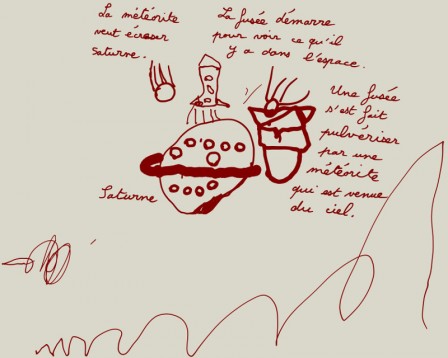 La météorite
veut écraser
saturne.
La fusée démarre
pour voir ce qu'il
y a dans l'espace.
Une fusée
s'est fait
pulvériser
par une
météorite
qui est venue
du ciel.
Saturne